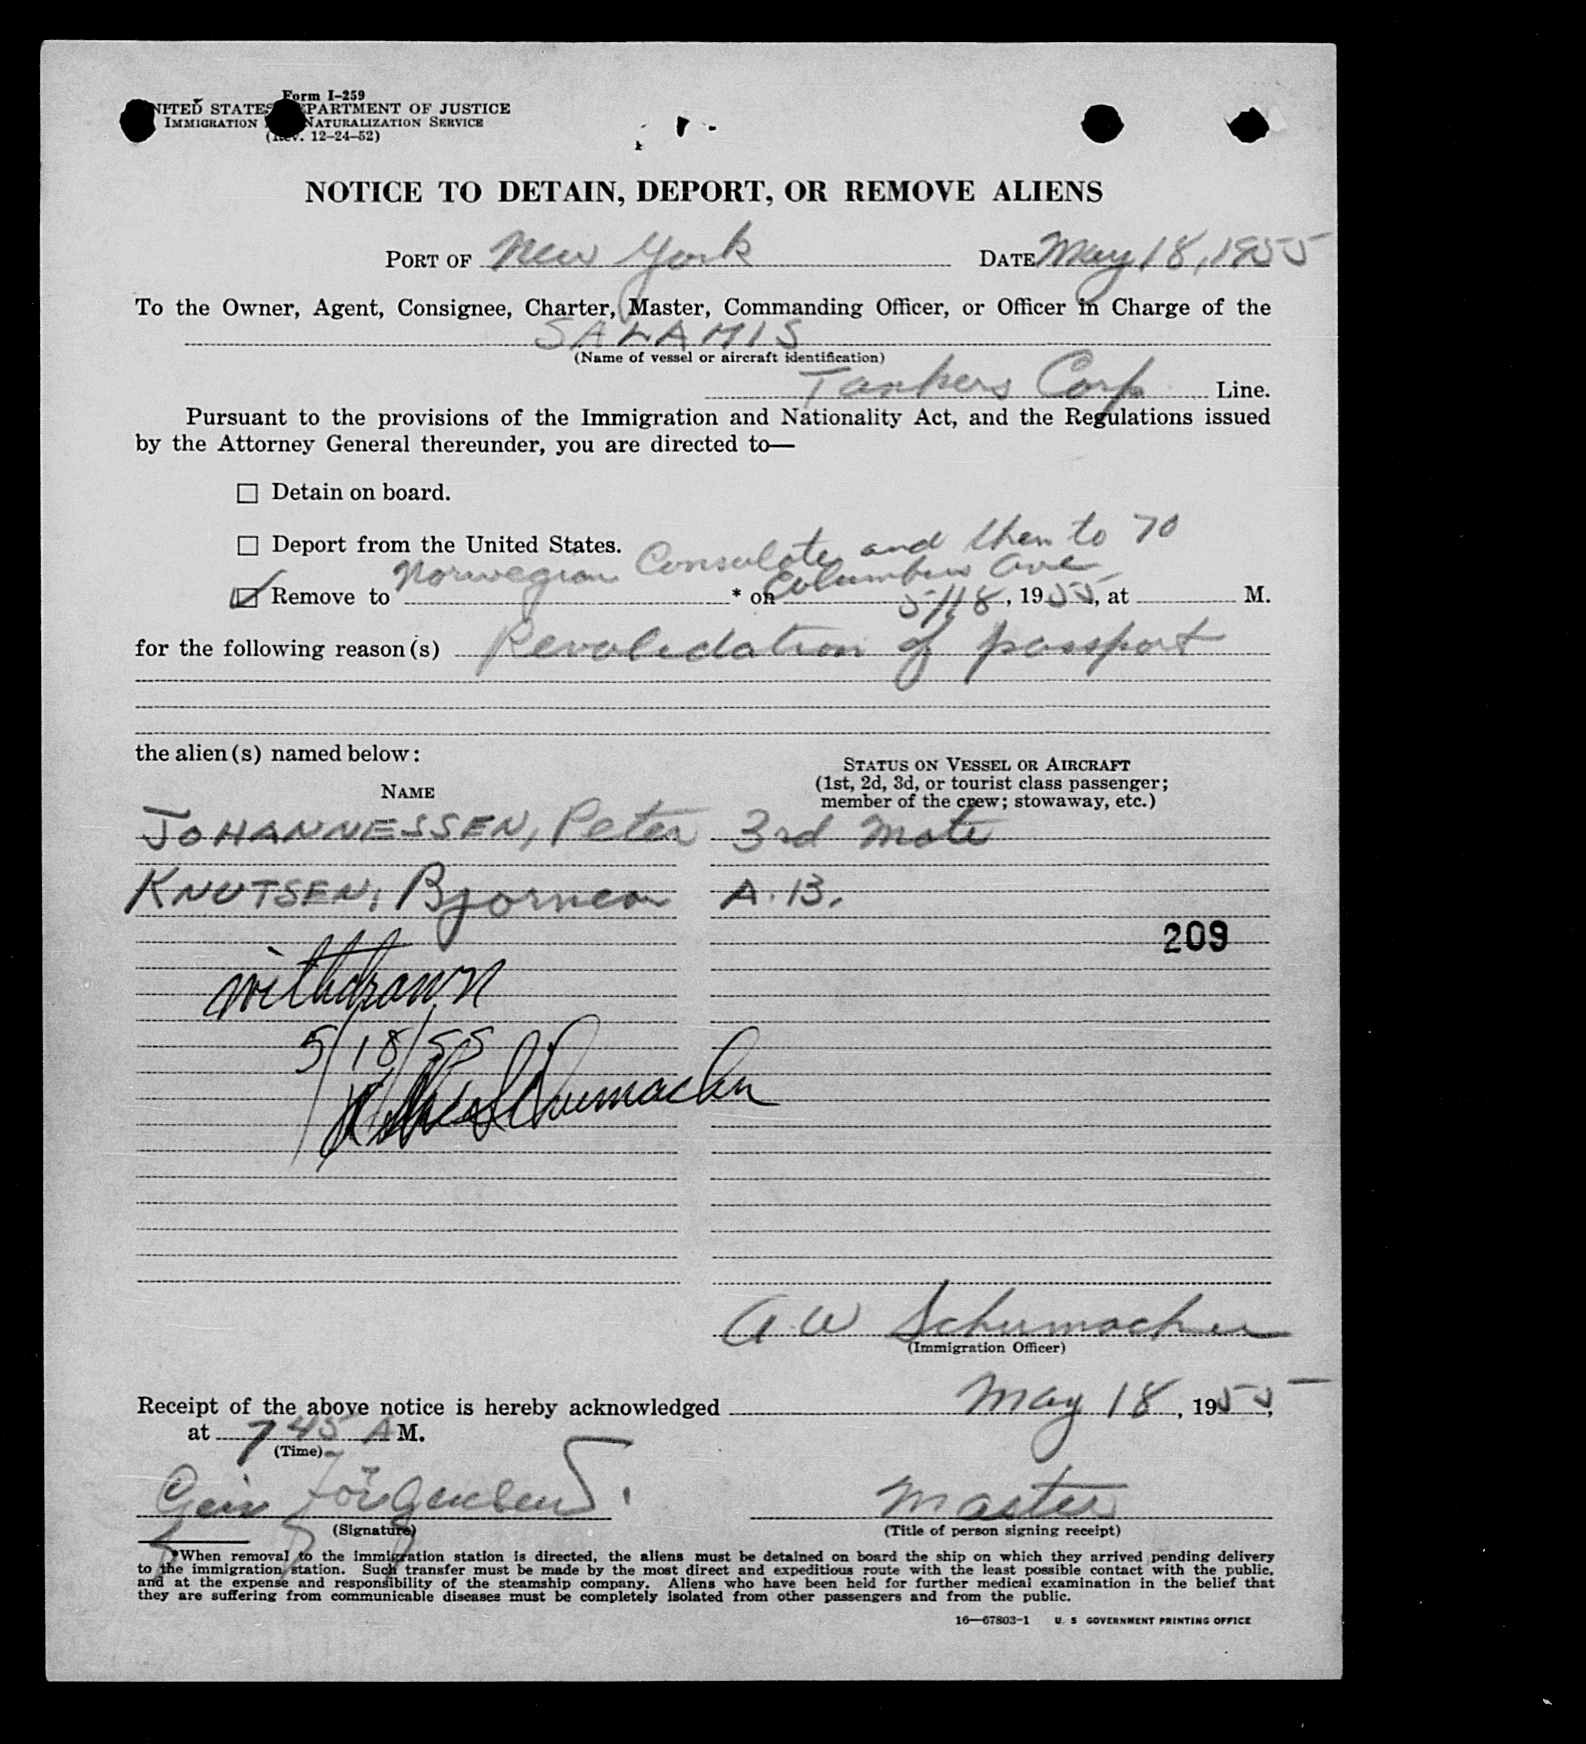 Form I-259
UNITED STATES DEPARTMENT OF JUSTICE
IMMIGRATION NATURALIZATION SERVICE
(Rev. 12-24-52)
NOTICE TO DETAIN, DEPORT, OR REMOVE ALIENS
PORT OF New York DATE May 18, 1955
To the Owner, Agent, Consignee, Charter, Master, Commanding Officer, or Officer in Charge of the
SALAMIS
(Name of vessel or aircraft identification)
Tankers Corp Line.
Pursuant to the provisions of the Immigration and Nationality Act, and the Regulations issued
by the Attorney General thereunder, you are directed to—
☐ Detain on board.
☐ Deport from the United States.
Norwegian Consulate and then to 70
Columbus Ave
☑ Remove to * on 5/18, 1955, at M.
for the following reason(s) Revalidation of passport
the alien(s) named below:
NAME
STATUS ON VESSEL OR AIRCRAFT
(1st, 2d, 3d, or tourist class passenger;
member of the crew; stowaway, etc.)
JOHANNESSEN, Peter 3rd Mate
KNUTSEN, A.B.
209
withdrawn
5/18/55
Schumacher
A W Schumacher
(Immigration Officer)
Receipt of the above notice is hereby acknowledged May 18, 1955,
at 7 45 A M.
(Time)
Geir
(Signature)
Master
(Title of person signing receipt)
*When removal to the immigration station is directed, the aliens must be detained on board the ship on which they arrived pending delivery
to the immigration station. Such transfer must be made by the most direct and expeditious route with the least possible contact with the public,
and at the expense and responsibility of the steamship company. Aliens who have been held for further medical examination in the belief that
they are suffering from communicable diseases must be completely isolated from other passengers and from the public.
16—67803-1 U. S GOVERNMENT PRINTING OFFICE